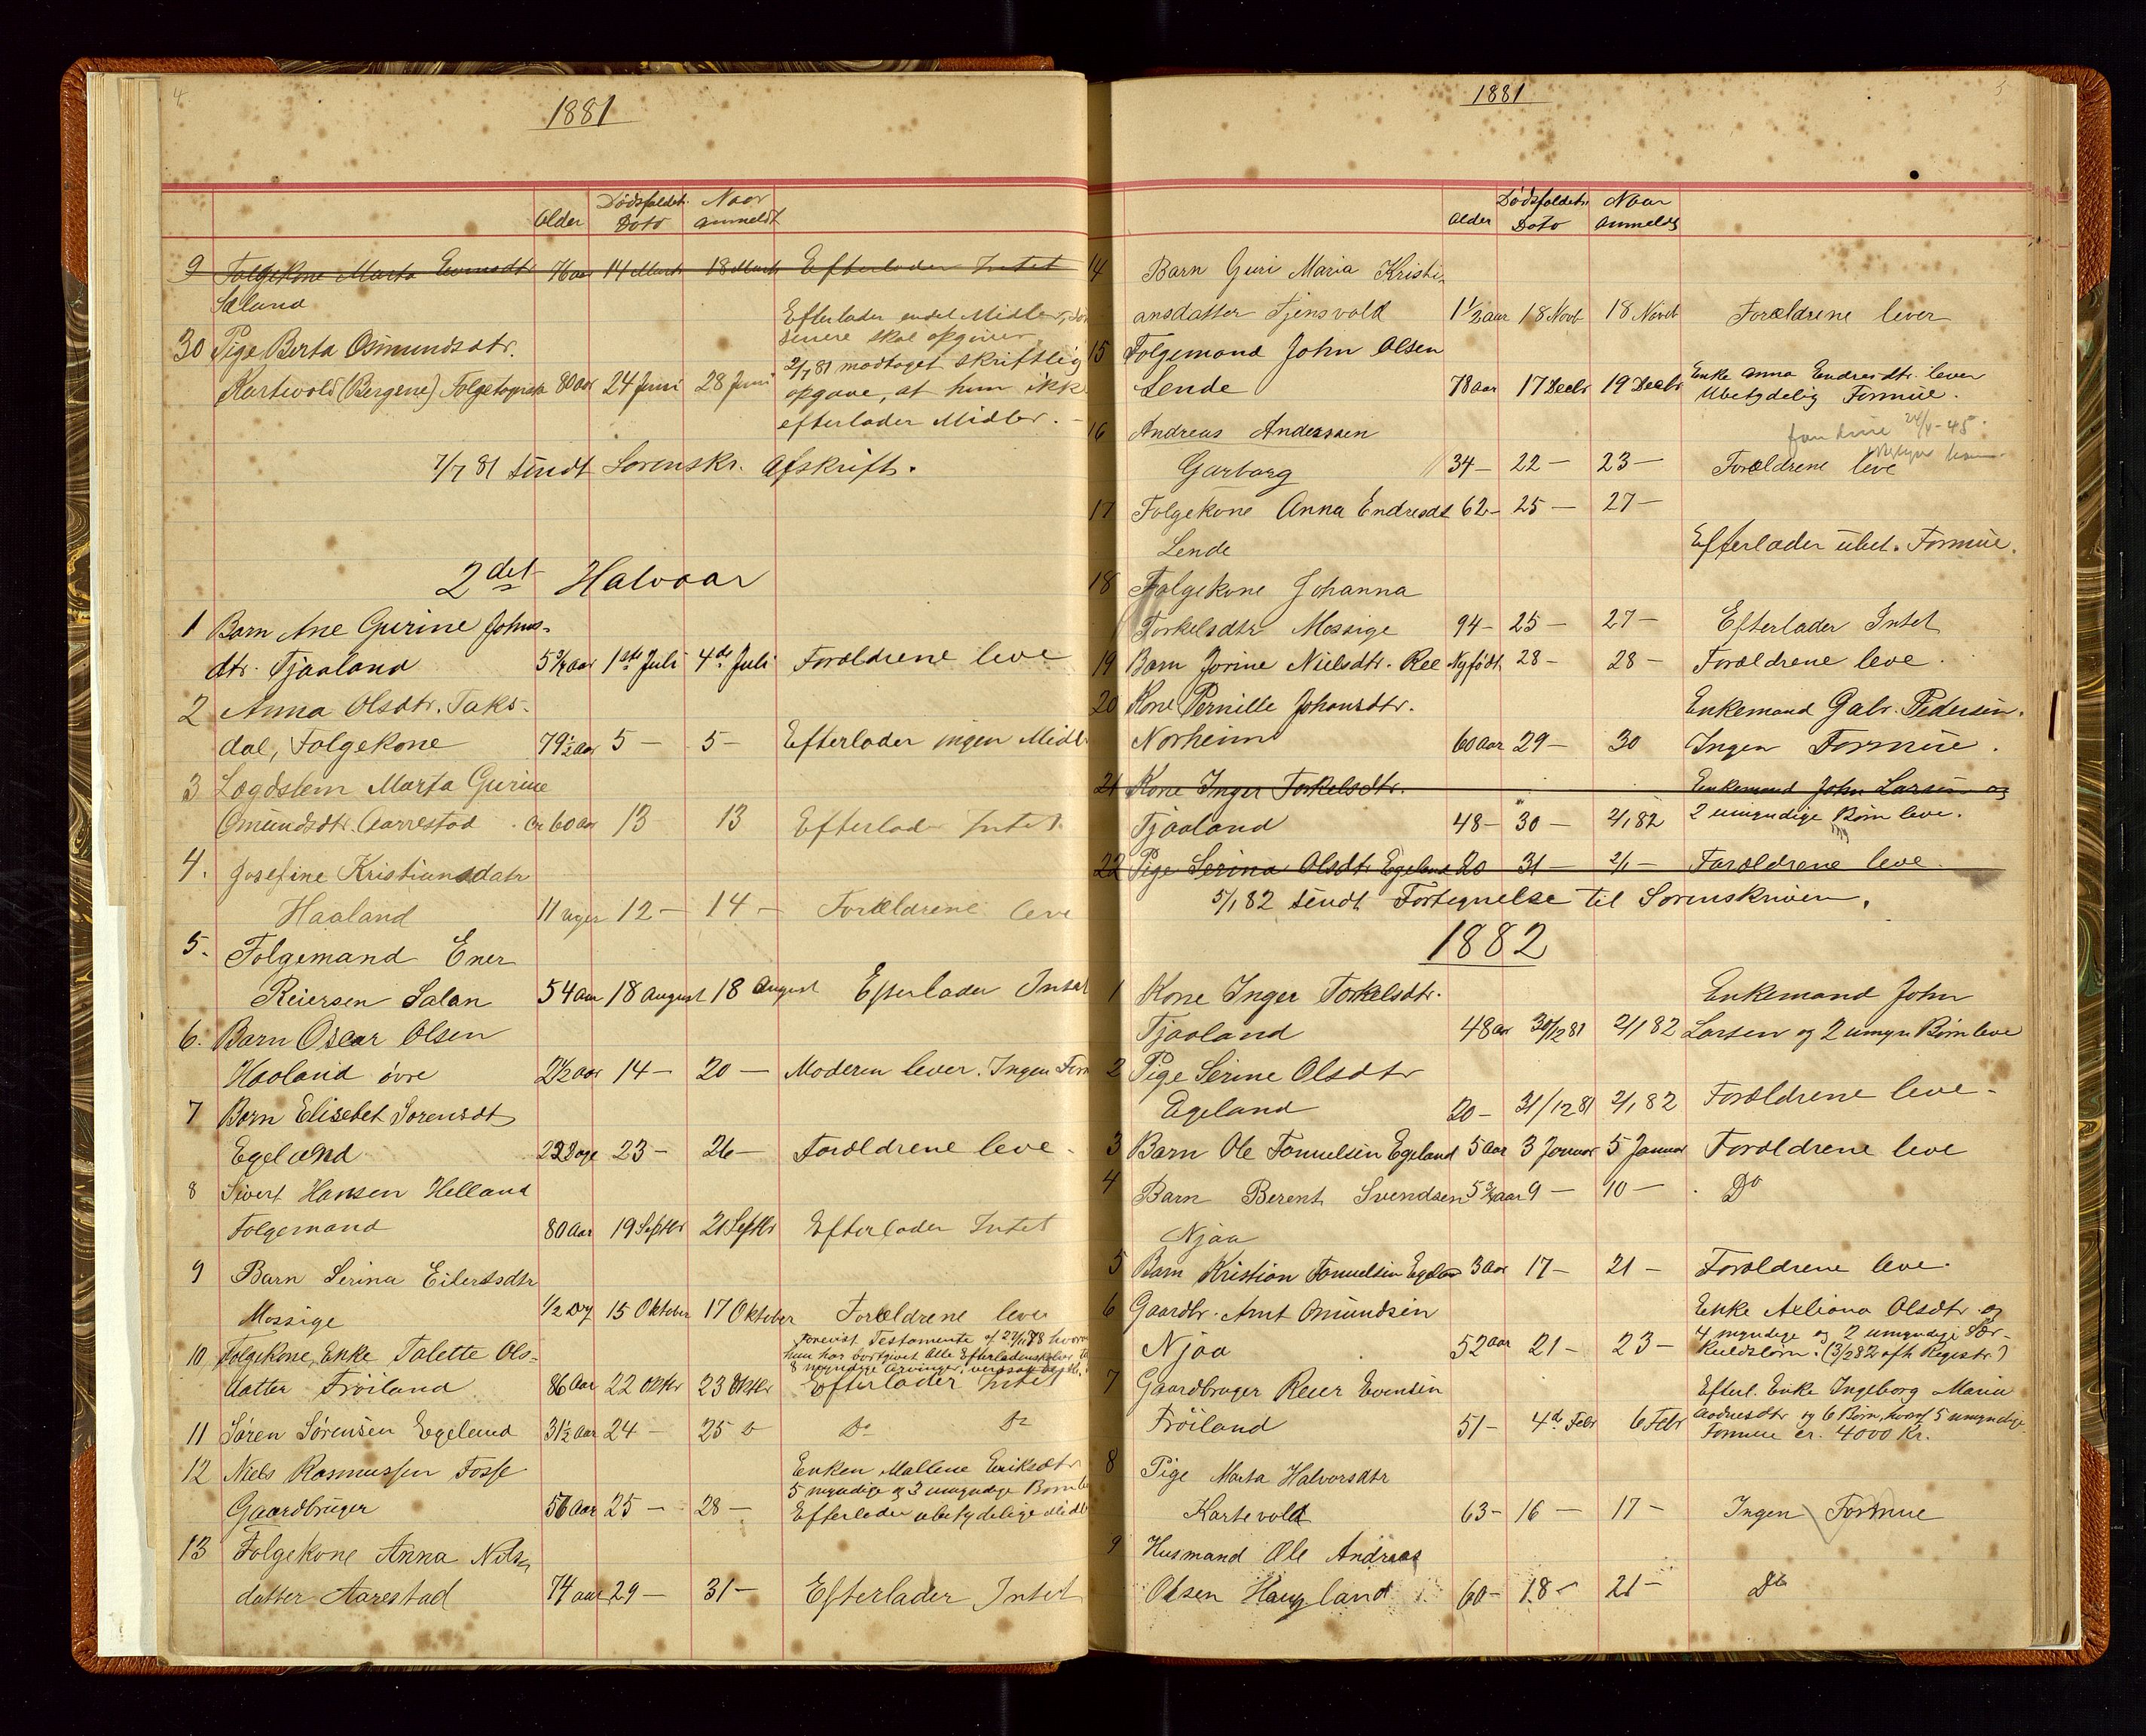 4
1881
Alder
Dødsfaldets Dato
Naar anmeldt
9 Folgekone Marta Evensdtr 76 aar 14 Marts 18 Marts Efterlader Intet
Sæland
Efterlader endel Midler, som
30 Pige Berta Osmundsdtr.
senere skal opgives
2/7 81 modtaget skriftlig
Kartevold (Bergene) 80 aar 24 Juni 28 Juni opgave, at hun ikke
efterlader Midler. -
7/7 81 sendt Sorenskr. Afskrift.
2det Halvaar
1 Barn Ane Gurine Johns-
dtr. Tjaaland 5 3/4 aar 1ste Juli 4de Juli Forældrene leve
2 Anna Olsdtr. Taks-
dal, Folgekone 79 1/2 aar 5 — 5 — Efterlader ingen Midl
3 Lægdslem Marta Gurine
Omundsdtr. Aarrestad Ca 60 aar 13 13 Efterlader Intet.
4. Josefine Kristiansdatr
Haaland 11 uger 12 — 14 — Forældrene leve
5. Folgemand Ener
Reiersen Salan 54 aar 18 August 18 August Efterlader Intet
6. Barn Oscar Olsen
Haaland øvre 2 1/2 aar 14 — 20 — Moderen lever. Ingen Form
7 Barn Elisebet Sorensdt
Egeland 22 Dage 23 — 26 — Forældrene leve.
8 Sivert Hansen Helland
Folgemand 80 Aar 19 Septbr 21 Septbr Efterlader Intet
9 Barn Serina Eilertsdtr
Mossige 1/2 Dag 15 Oktober 17 Oktober Forældrene leve
Forevist Testamente af 27/1 78 hvorm
10 Folgekone, Enke Talette Ols-
hun har bortgivet Alle Efterladenskaber til
8 myndige Arvinger,
datter Frøiland 86 Aar 22 Oktbr 23 Oktbr Efterlader Intet
11 Søren Sørensen Egeland 31 1/2 Aar 24 — 25 Do Do
12 Niels Rasmussen Fosse Enken Mallene Eriksdtr
5 myndige og 3 umyndige Børn
Gaardbruger 56 Aar 25 — 28 — Efterlader ubetydelige Midl
13 Folgekone Anna Nils-
datter Aarestad 74 aar 29 — 31 — Efterlader Intet
1881
Alder
Dødsfaldets Dato
Naar anmeldt
14 Barn Guri Maria Kristi-
ansdatter Tjensvold 1 1/2 aar 18 Novb 18 Novb Forældrene lever
15 Folgemand John Olsen
Lende 78 aar 17 Decbr 19 Decbr Enke Anna Endresdtr. lever
Ubetydelig Formue.
16 Andreas Anderssen
24/4-45.
Garborg 34 — 22 — 23 — Forældrene leve
17 Folgekone Anna Endresdt 62 — 25 — 27 —
Lende Efterlader ubet. Formue.
18 Folgekone Johanna
Torkelsdtr Mossige 94 — 25 — 27 — Efterlader Intet
19 Barn Jorine Nielsdtr. Ree Nyfødt 28 — 28 — Forældrene leve.
20 Kone Pernille Johansdtr. Enkemand Gabr. Pedersen.
Norheim 60 Aar 29 — 30 Ingen Formue.
21 Kone Inger Torkelsdtr. Enkemand John Larsen og
Tjaaland 48 — 30 — 2/1 82 2 umyndige Børn leve.
22 Pige Serina Olsdtr Egeland 20 31 — 2/1 — Forældrene leve.
5/1 82 sendt Fortegnelse til Sorenskriven.
1882
1 Kone Inger Torkelsdtr. Enkemand John
Tjaaland 48 aar 30/12 81 2/1 82 Larsen og 2 umyn. Børn leve
2 Pige Serine Olsdtr
Egeland 20 — 31/12 81 2/1 82 Forældrene leve —
3 Barn Ole Tonnelsen Egeland 5 aar 3 Januar 5 Januar Forældrene leve
4 Barn Berent Svendsen 5 3/4 aar 9 — 10 — Do
Njaa
5 Barn Kristian Tonnelsen Egeland 3 aar 17 — 21 — Forældrene leve.
6 Gaardbr. Arnt Omundsen Enke Axliana Olsdtr. og
Njaa 52 aar 21 — 23 — 4 myndige og 2 umyndige Sær-
kuldsbørn: (3/2 82 afh. Registr.)
7 Gaardbruger Reier Evensen Efterl. Enke Ingeborg Maria
Frøiland 51 — 4de Febr 6 Febr Andresdtr og 6 Børn, hvoraf 5 umyndige.
Formue ca. 4000 Kr.
8 Pige Marta Halvorsdtr
Kartevold 63 — 16 — 17 — Ingen Formue
9 Husmand Ole Andreas
Olsen Haugland 60 — 18 — 21 — Do